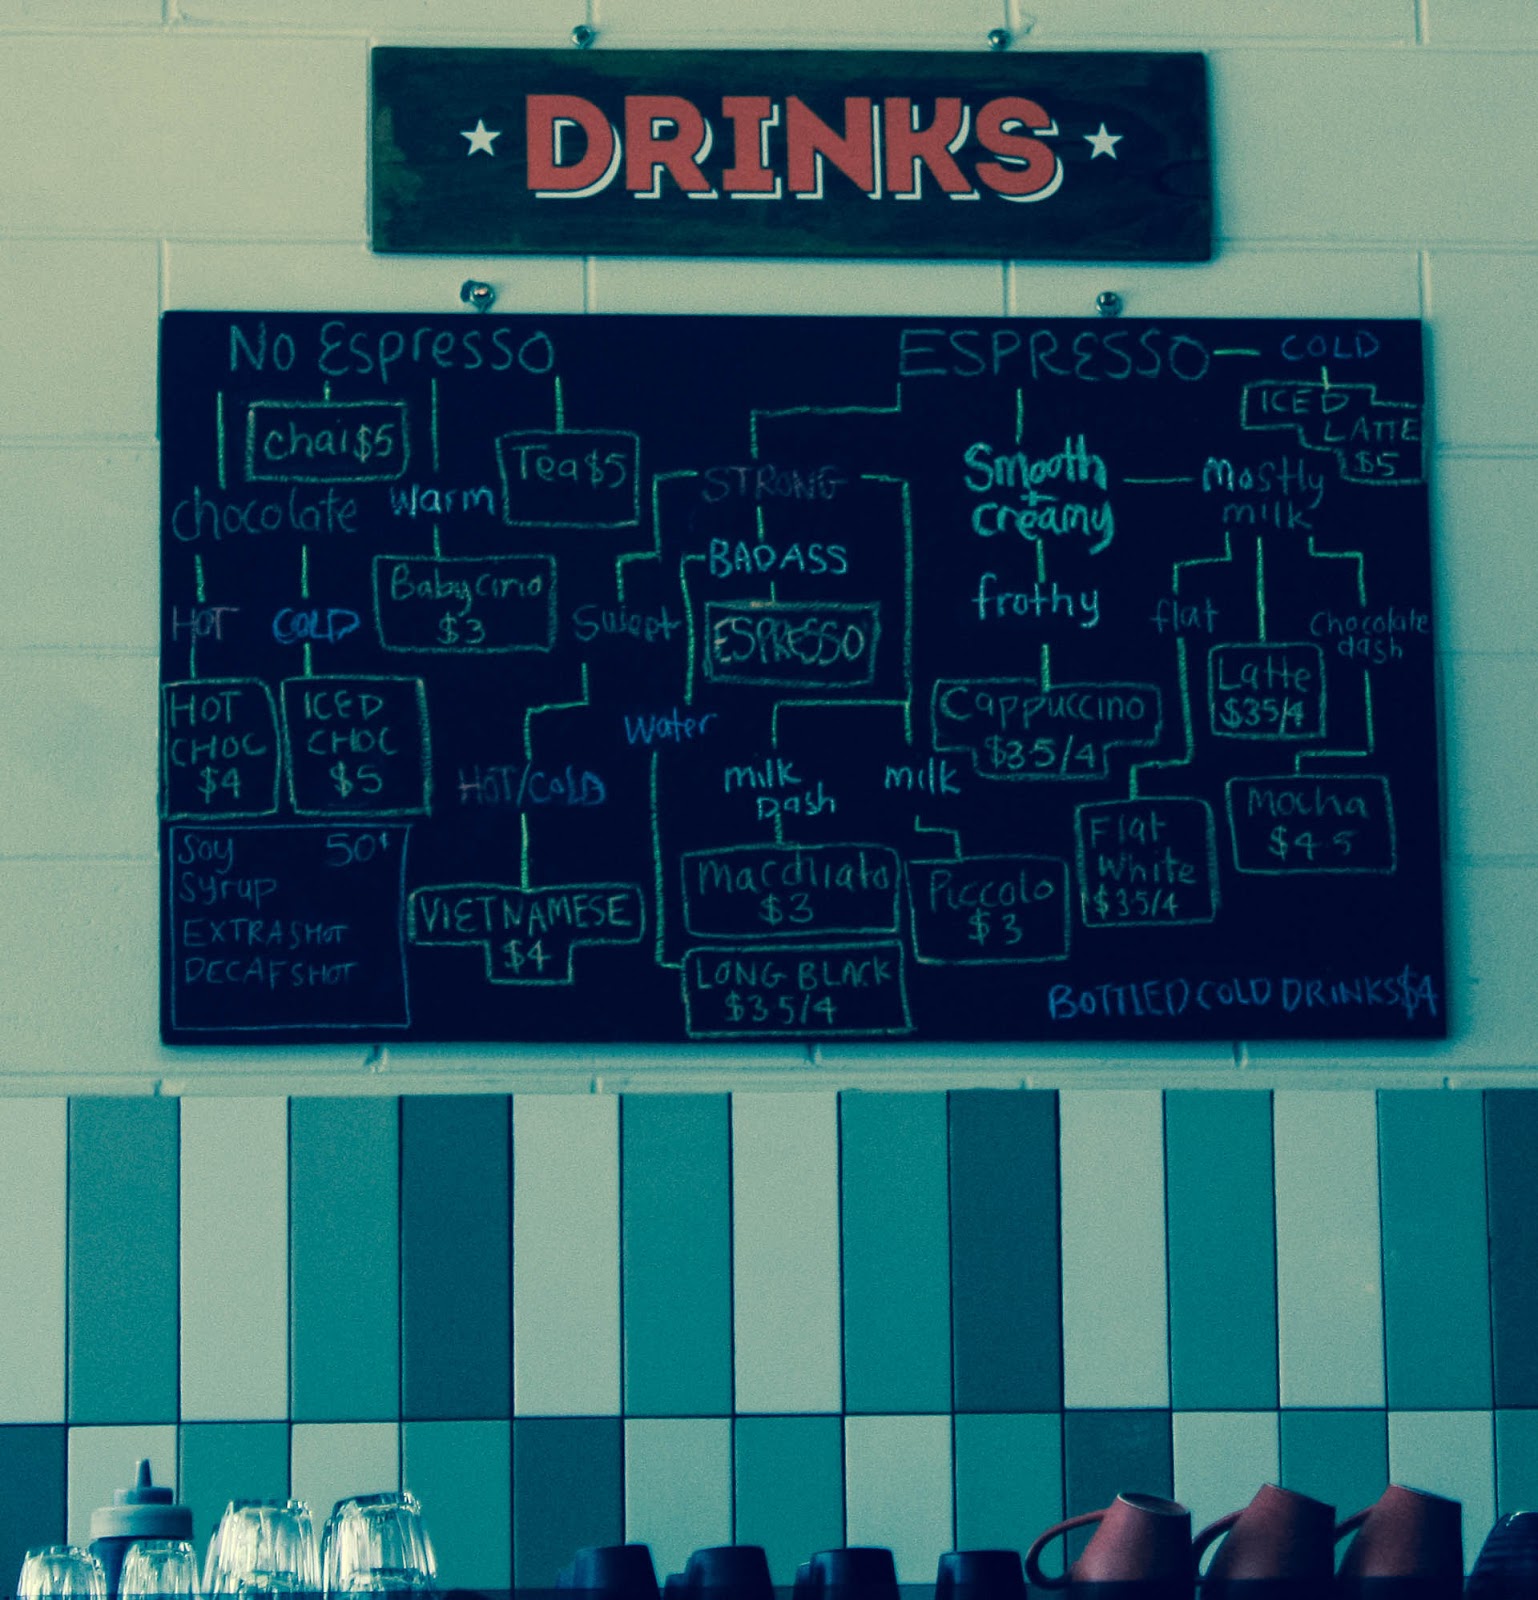 DRINKS
No Espresso
ESPRESSO
COLD
chai $5
Tea $5
ICED
LATTE
$5
chocolate
warm
STRONG
Smooth
+
creamy
Mostly
milk
BADASS
Babycino
$3
HOT
COLD
Sweet
ESPRESSO
frothy
flat
chocolate
dash
HOT
CHOC
$4
ICED
CHOC
$5
Water
Cappuccino
$3.5/4
Latte
$3.5/4
HOT/COLD
milk
Dash
milk
Mocha
$4.5
Flat
White
$3.5/4
Soy 50¢
Syrup
EXTRA SHOT
DECAF SHOT
VIETNAMESE
$4
Macchiato
$3
Piccolo
$3
LONG BLACK
$3.5/4
BOTTLED COLD DRINKS $4